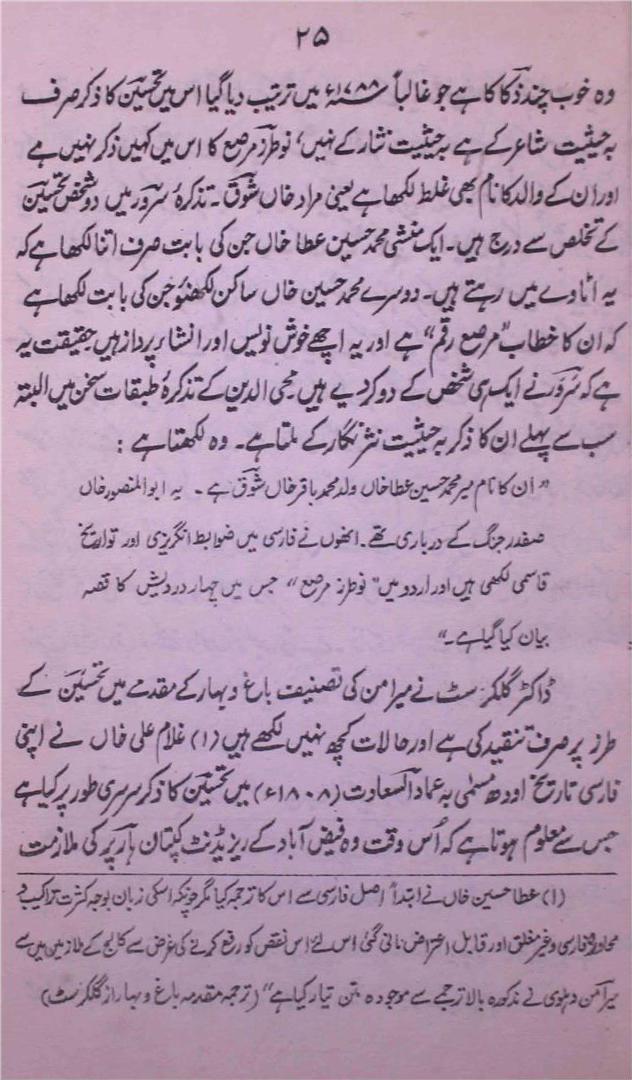 ۲۵
وہ خوب چند ذکا کا ہے جو غالباً ۱۷۸۸ء میں ترتیب دیا گیا اس میں تحسین کا ذکر صرف
بہ حیثیت شاعر کے ہے بہ حیثیت نثار کے نہیں، نو طرز مرصع کا اس میں کہیں ذکر نہیں ہے
اور ان کے والد کا نام بھی غلط لکھا ہے یعنی مراد خاں شوق۔ تذکرۂ سرور میں دو شخص تحسین
کے تخلص سے درج ہیں۔ ایک منشی محمد حسین عطا خاں جن کی بابت صرف اتنا لکھا ہے کہ
یہ اٹاوے میں رہتے ہیں۔ دوسرے محمد حسین خاں ساکن لکھنؤ جن کی بابت لکھا ہے
کہ ان کا خطاب "مرصع رقم" ہے اور یہ اچھے خوش نویس اور انشاء پرداز ہیں حقیقت یہ
ہے کہ سرور نے ایک ہی شخص کے دو کر دیے ہیں۔ محی الدین کے تذکرۂ طبقات سخن میں البتہ
سب سے پہلے ان کا ذکر بہ حیثیت نثر نگار کے ملتا ہے۔ وہ لکھتا ہے :
"ان کا نام میر محمد حسین عطا خاں ولد محمد باقر خاں شوق ہے۔ یہ ابوالمنصور خاں
صفدر جنگ کے درباری تھے۔ انھوں نے فارسی میں ضوابط انگریزی اور تواریخ
قاسمی لکھی ہیں اور اردو میں "نو طرز مرصع" جس میں چہار درویش کا قصہ
بیان کیا گیا ہے۔"
ڈاکٹر گلکرسٹ نے میر امن کی تصنیف باغ و بہار کے مقدمے میں تحسین کے
طرز پر صرف تنقید کی ہے اور حالات کچھ نہیں لکھے ہیں (۱) غلام علی خاں نے اپنی
فارسی تاریخ اودھ مسمٰی بہ عماد السعادت (۱۸۰۸ء) میں تحسین کا ذکر سرسری طور پر کیا ہے
جس سے معلوم ہوتا ہے کہ اُس وقت وہ فیض آباد کے ریزیڈنٹ کپتان ہارپر کی ملازمت
(۱) عطا حسین خاں نے ابتداً اصل فارسی سے اس کا ترجمہ کیا مگر چونکہ اسکی زبان بوجہ کثرت تراکیب و
محاورہ فارسی وغیر مغلق اور قابل اعتراض مانی گئی اس لئے اس نقص کو رفع کرنے کی غرض سے کالج کے ملازمین میں سے
میر امن دہلوی نے مذکورہ بالا ترجمے سے موجودہ متن تیار کیا ہے" (ترجمہ مقدمہ باغ و بہار از گلکرسٹ)